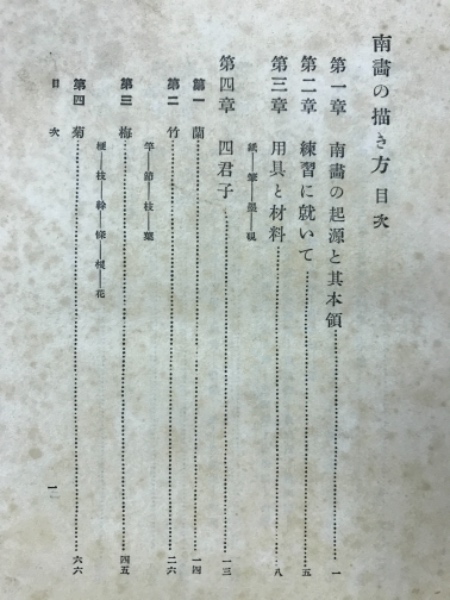 南畵の描き方 目次
第一章 南畵の起源と其本領 一
第二章 練習に就いて 五
第三章 用具と材料 八
紙――筆――墨――硯
第四章 四君子 一三
第一 蘭 一四
第二 竹 二六
竿――節――枝――葉
第三 梅 四五
枝――幹――花
第四 菊 六六
目次 一